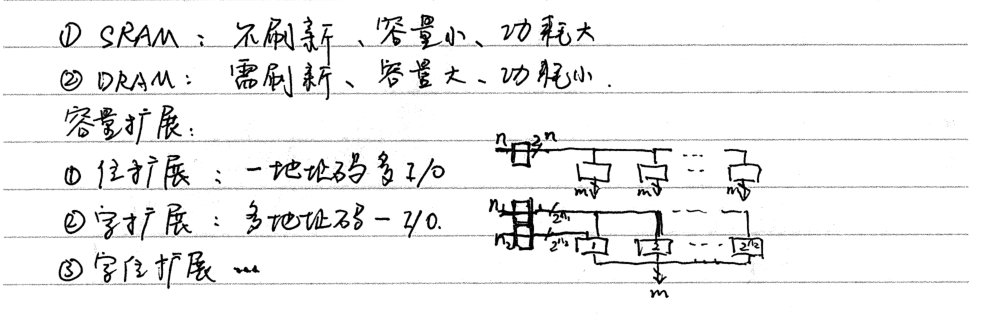 ① SRAM：不刷新、容量小、功耗大
② DRAM：需刷新、容量大、功耗小.
容量扩展：
① 位扩展：一地址码多I/O
n 2ⁿ ... m m m
② 字扩展：多地址码一I/O.
n₁ 2ⁿ¹ ...
n₂ 2ⁿ² 1 2 ... 2ⁿ²
③ 字位扩展 ...
m